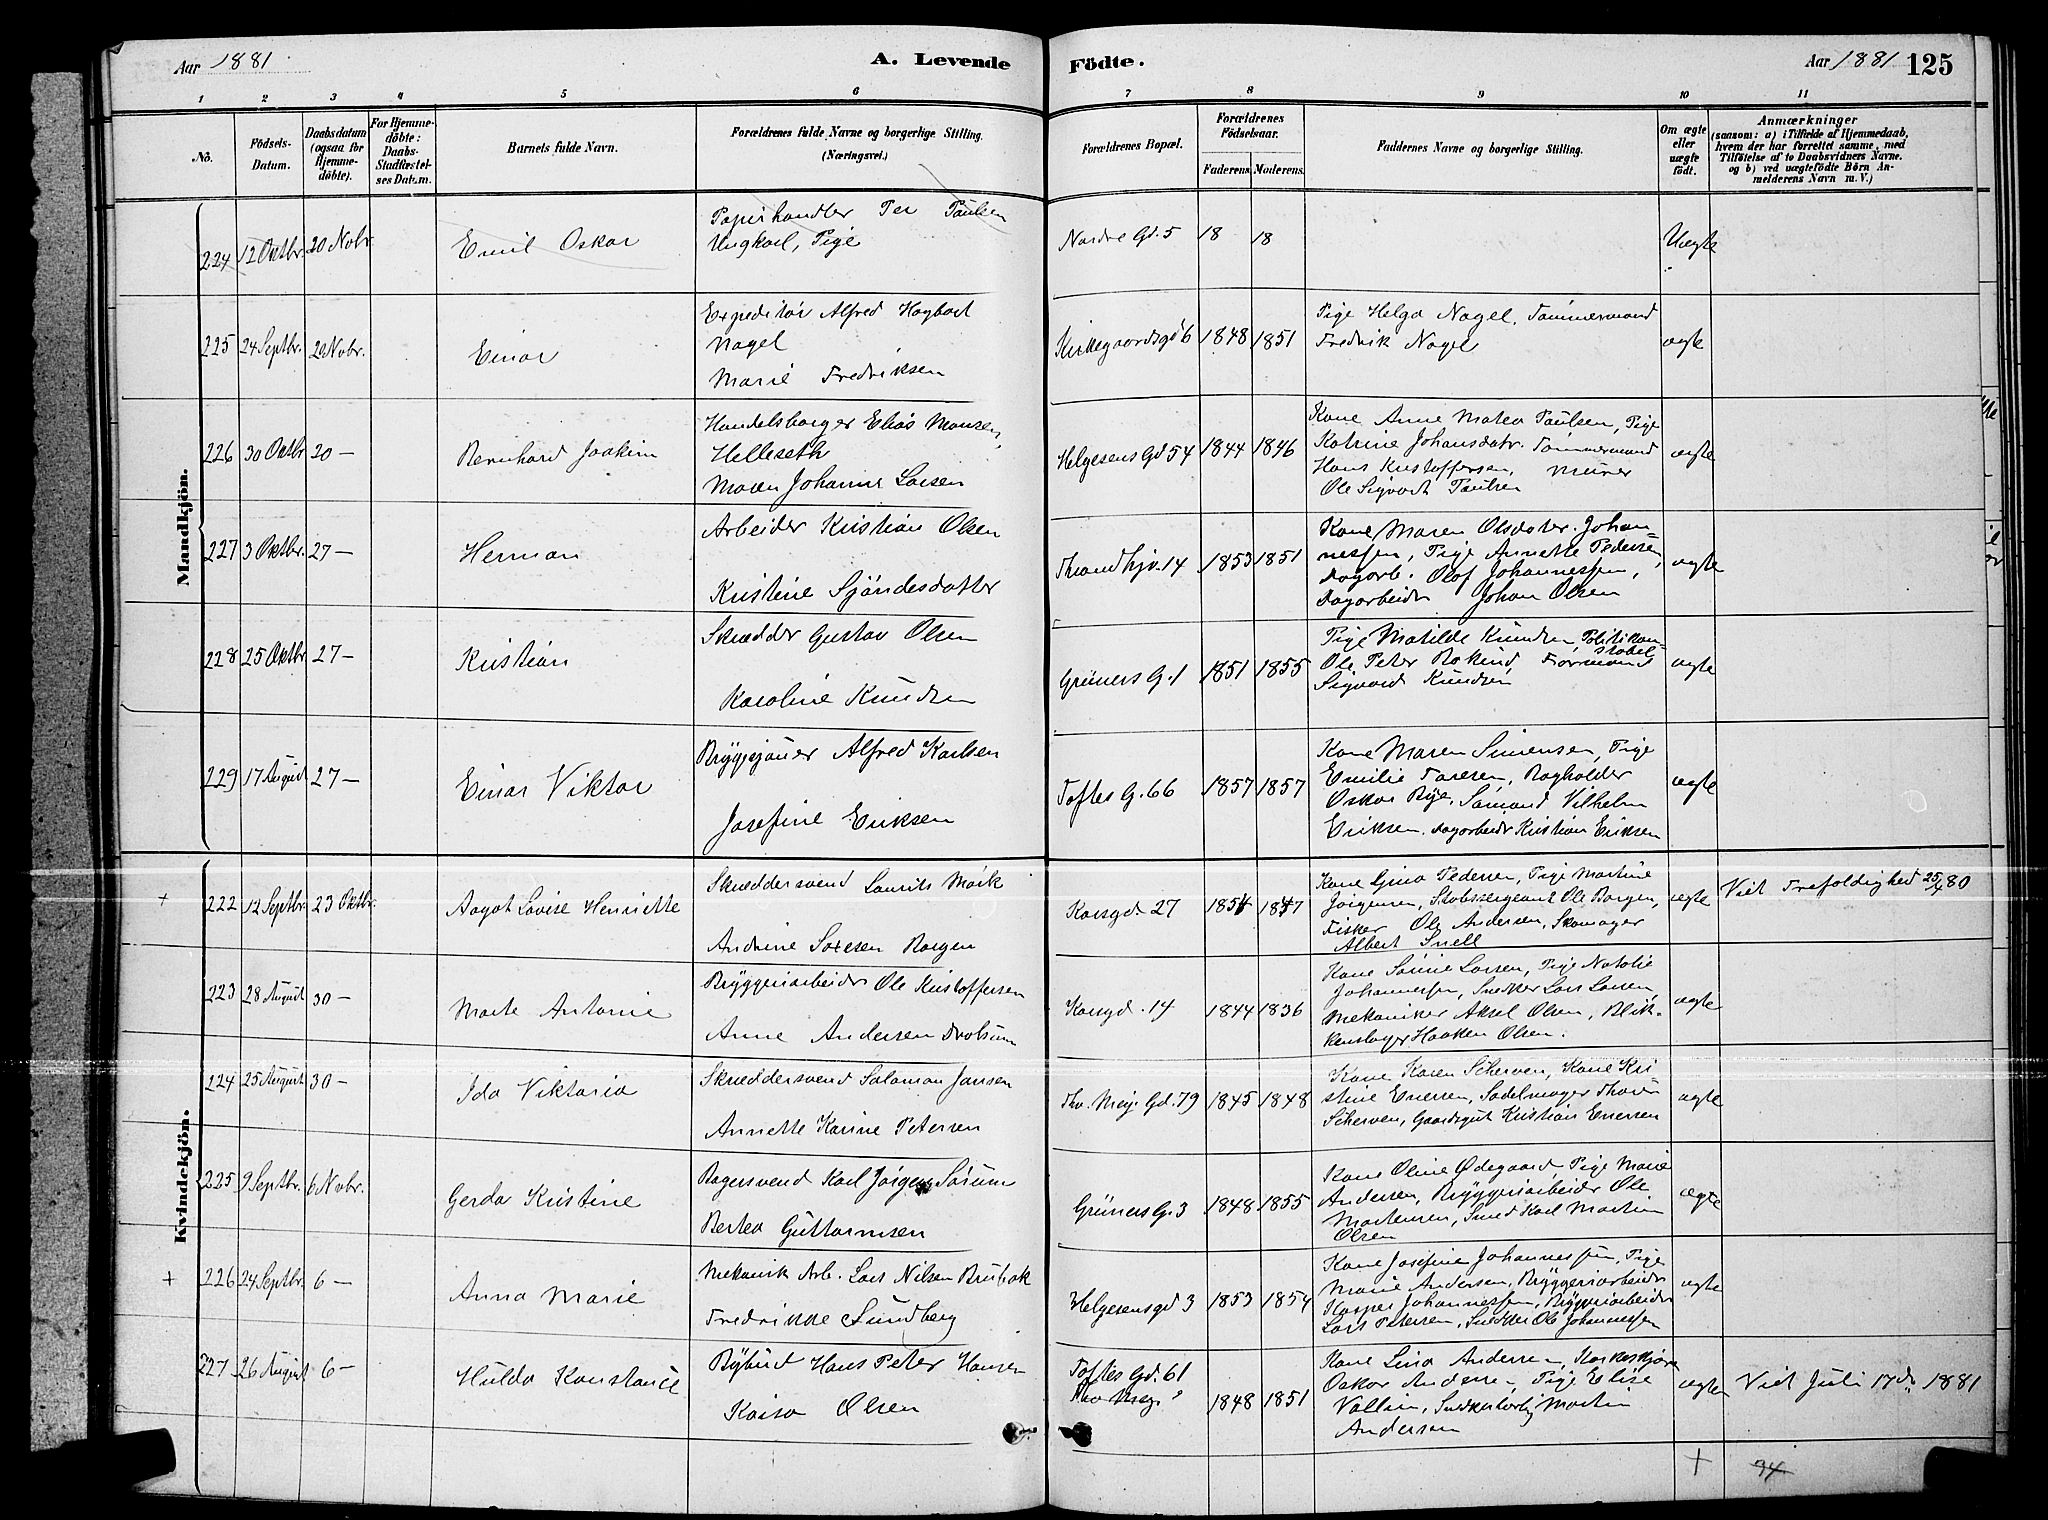 Aar 1881 A. Levende Födte. Aar 1881 125
1 2 3 4 5 6 7 8 9 10 11
No.
Födsels-Datum.
Daabsdatum (ogsaa for Hjemmedöbte).
For Hjemmedöbte: Daabs-Stadfæstelses Datum.
Barnets fulde Navn.
Forældrenes fulde Navne og borgerlige Stilling.
(Næringsvei.)
Forældrenes Bopæl.
Forældrenes Födselsaar.
Faderens. Moderens.
Faddernes Navne og borgerlige Stilling.
Om ægte eller uægte födt.
Anmærkninger
(saasom: a) i Tilfælde af Hjemmedaab,
hvem der har forrettet samme, med
Tilföielse af to Daabsvidners Navne.
og b) ved uægtefödte Börn An-
melderens Navn m. V.)
Mandkjön.
224 12 Oktbr. 20 Nobr. Emil Oskar
Papirhandler Per Paulsen
Ungkarl, Pige
Nordre Gd. 5 18 18 Uægte
225 24 Septbr. 20 Nobr. Einar
Expeditör Alfred Hagbart
Nagel
Marie Fredriksen
Kirkegaardsgd 6 1848 1851
Pige Helga Nagel, Tömmermand
Fredrik Nagel
ægte
226 30 Oktbr 20 — Bernhard Joakim
Handelsborger Elias Monsen
Helleseth
Maren Johanne Larsen
Helgesens Gd 54 1844 1846
Kone Anne Matea Paulsen, Pige
Katrine Johansdatr. Tömmermand
Hans Kristoffersen, Murer
Ole Sigvart Paulsen
ægte
227 3 Oktbr. 27 — Herman
Arbeider Kristian Olsen
Kristine Sjöndesdatter
Throndhjv. 14 1853 1851
Kone Maren Olsdater. Johan-
nessen, Pige Annette Pedersen,
Dagarb. Olof Johannessen,
Dagarbeider Johan Olsen
ægte
228 25 Oktbr 27 — Kristian
Skrædder Gustav Olsen
Karoline Knudsen
Grüners G. 1 1851 1855
Pige Matilde Knudsen, Politikon-
stabel
Ole Peter Formand
Sigvard Knudsen
ægte
229 17 August 27 — Einar Viktor
Bryggejauer Alfred Karlsen
Josefine Eriksen
Toftes G. 66 1857 1857
Kone Maren Simensen, Pige
Emilie Bogholder
Oskar Rye, Sömand Vilhelm
Eriksen. Dagarbeider Kristian Eriksen
ægte
Kvindekjön.
+ 222 12 Septbr. 23 Oktbr. Aagot Lovise Henriette
Skræddersvend Laurits Mörk
Andrine Borgen
Korsgd. 27 1854 1847
Kone Gina Pedersen, Pige Martine
Jörgensen, Stabssergeant Ole Borgen,
Fisker Ole Andersen, Skomager
Albert Snell
ægte Viet Trefoldighed 25/4 80
223 28 August 30 — Marte Antonie
Bryggeriarbeider Ole Kristoffersen
Anne Andersen Drolsum
Korsgd. 14 1844 1836
Kone Larsen, Pige Natalie
Johannessen, Snedker Lars Larsen,
Mekaniker Aksel Olsen, Blik-
kenslager Haaken Olsen.
ægte
224 25 August 30 — Ida Viktoria
Skræddersvend Salamon Jansen
Annette Karine Petersen
Thv. Meyr Gd. 79 1845 1848
Kone Karen Scherven, Kone Kri-
stine Enersen, Sadelmager Thor
Scherven, Gaardsgut Kristian Enersen
ægte
225 9 Septbr. 6 Nobr. Gerda Kristine
Bagersvend Karl Jörgen Sörum
Bertea Guttormsen
Grüners G. 3 1848 1855
Kone Oline Ödegaard, Pige Marie
Andersen, Bryggeriarbeider Ole
Mortensen, Smed Karl Martin
Olsen
ægte
+ 226 24 Septbr. 6 — Anna Marie
Mekanisk Arb. Lars Nilsen Brubak
Fredrikke Sundberg
Helgesensgd 3 1853 1854
Kone Josefine Johannessen, Pige
Marie Andersen, Bryggeriarbeider
Kasper Johannessen, Bryggeriarbeider
Lars Petersen, Snedker Ole Johannessen
ægte
227 26 August 6 — Hulda Konstance
Bybud Hans Peter Hansen
Kaisa Olsen
Toftes Gd. 61
Thv Meyr
1848 1851
Kone Lina Andersen,
Oskar Andersen, Pige Elise
Vallin, Martin
Andersen
ægte Viet Juli 17d. 1881
+ 94